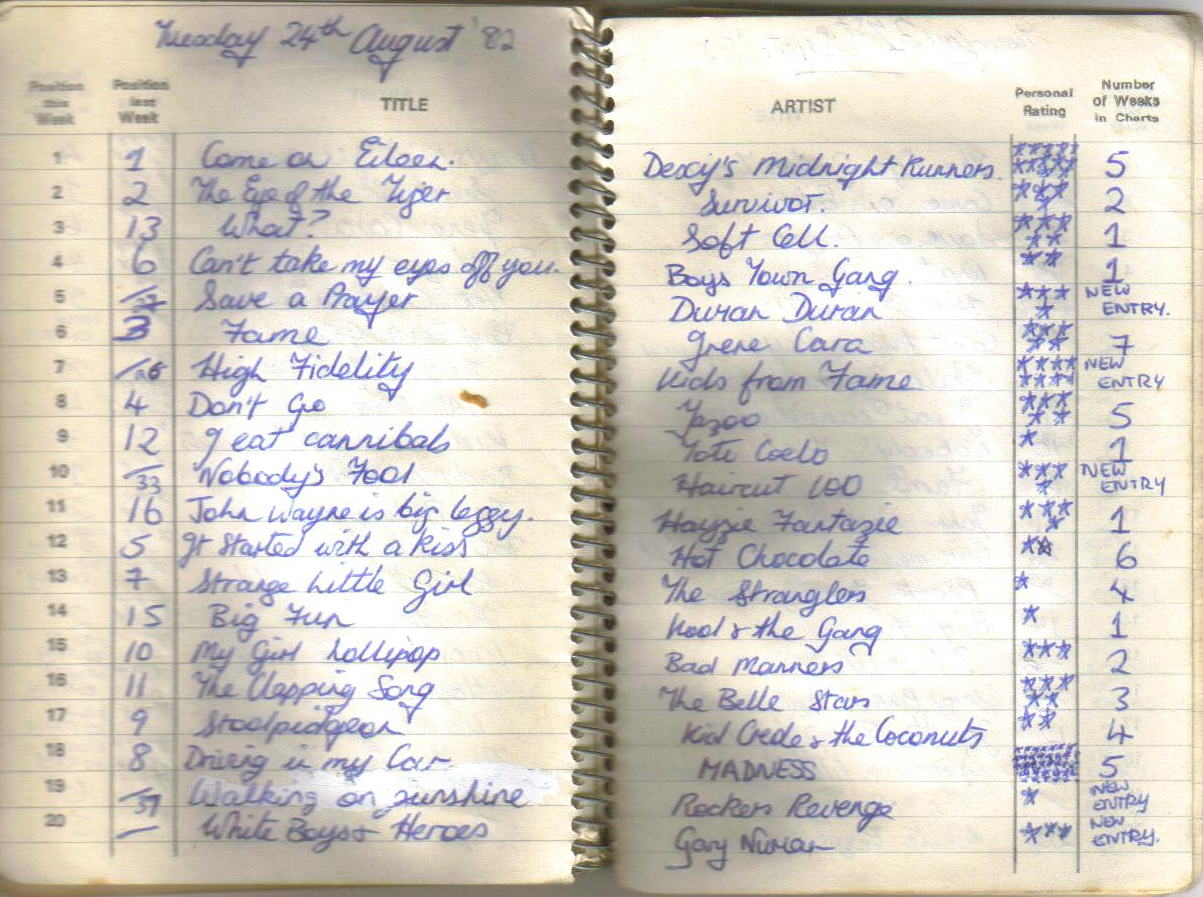 Tuesday 24th August '82
Position this Week Position last Week TITLE ARTIST Personal Rating Number of Weeks in Charts
1 1 Come on Eileen. Dexy's Midnight Runners. ********* 5
2 2 The Eye of the Tiger Survivor. **** 2
3 13 What? Soft Cell. ***** 1
4 6 Can't take my eyes off you. Boys Town Gang. ** 1
5 —/37 Save a Prayer Duran Duran **** NEW ENTRY.
6 3 Fame Irene Cara ***** 7
7 —/26 High Fidelity Kids from Fame ******** NEW ENTRY
8 4 Don't Go Yazoo ***** 5
9 12 I eat cannibals Toto Coelo * 1
10 —/33 Nobody's Fool Haircut 100 **** NEW ENTRY
11 16 John Wayne is big leggy. Hayzie Fantazie **** 1
12 5 It started with a kiss Hot Chocolate ** 6
13 7 Strange Little Girl The Stranglers * 4
14 15 Big Fun Kool & the Gang * 1
15 10 My Girl Lollipop Bad Manners *** 2
16 11 The Clapping Song The Belle Stars ***** 3
17 9 Stoolpidgeon Kid Creole & the Coconuts ** 4
18 8 Driving in my Car MADNESS 5
19 —/37 Walking on sunshine Rockers Revenge * NEW ENTRY
20 — White Boys & Heroes Gary Numan *** NEW ENTRY.